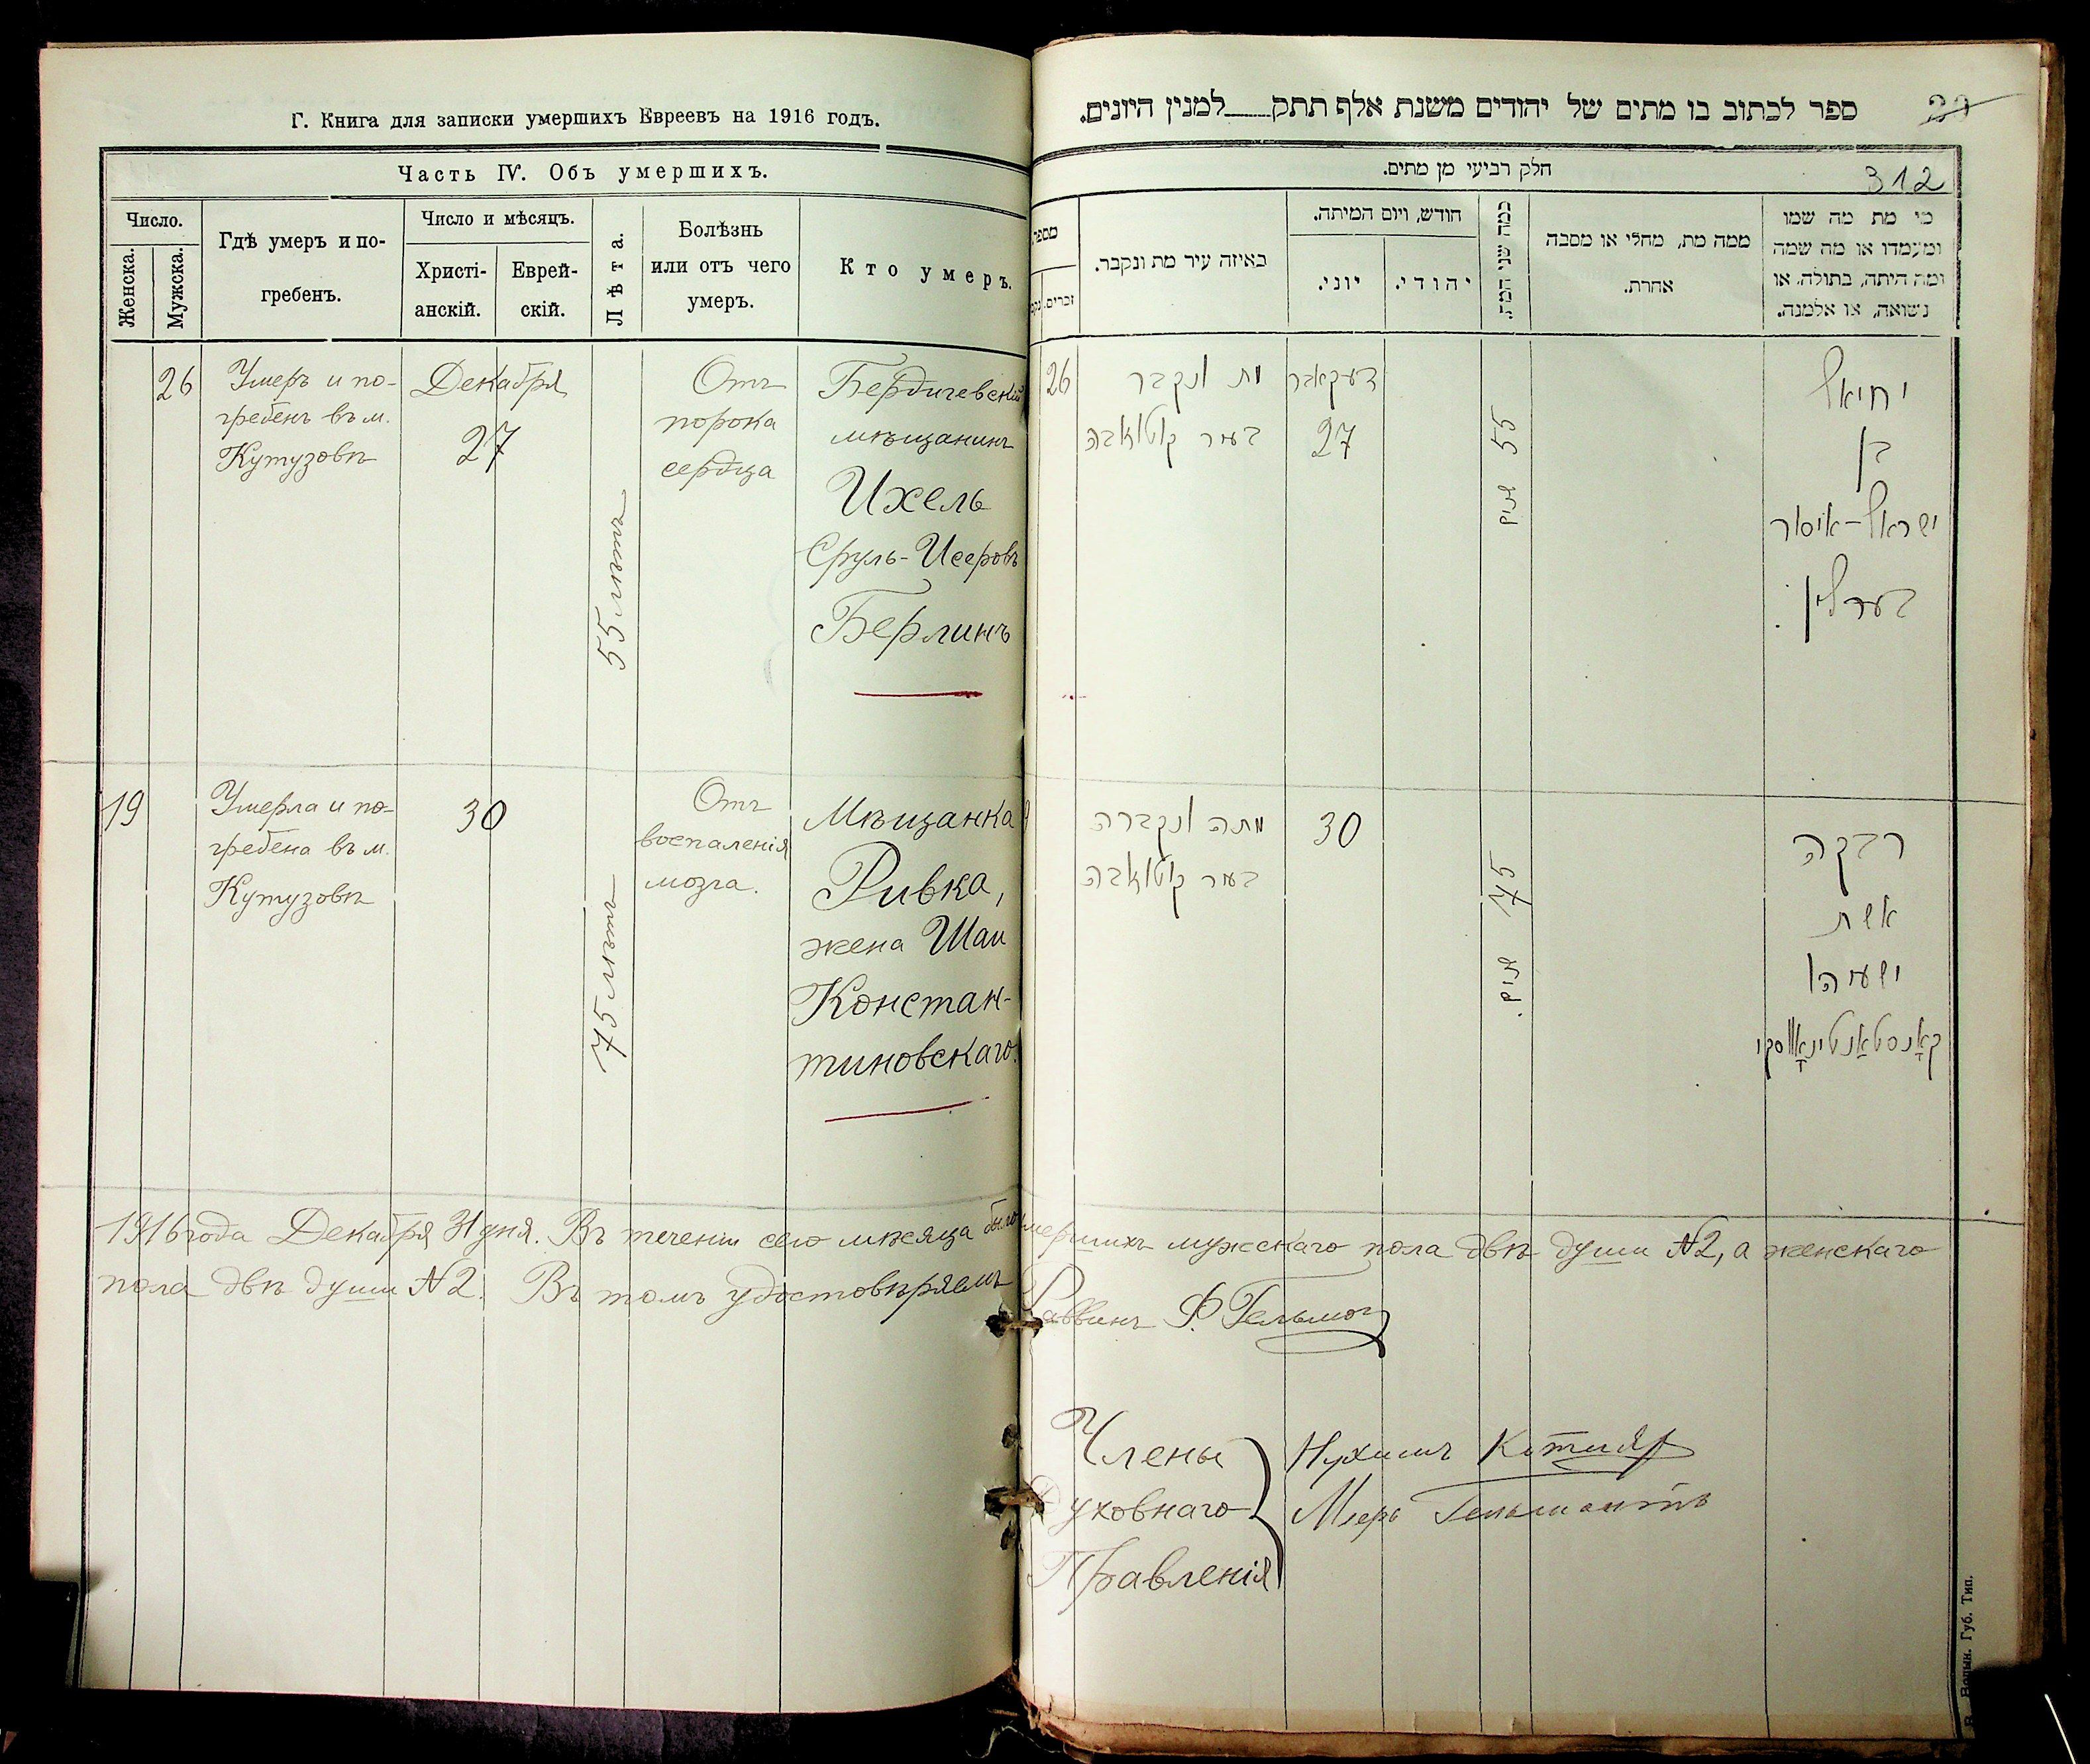 Г. Книга для записки умершихъ Евреевъ на 1916 годъ.
Часть IV. Объ умершихъ.
Число.
Женска.
Мужска.
Гдѣ умеръ и по-
гребенъ.
Число и мѣсяцъ.
Христі-
анскій.
Еврей-
скій.
Лѣта.
Болѣзнь
или отъ чего
умеръ.
Кто умеръ.
26
Умеръ и по-
гребенъ въ м.
Кутузовѣ
Декабря
27
55 лѣтъ
Отъ
порока
сердца
Бердичевскій
мѣщанинъ
Ихель
Сруль-Исеровъ
Берлинъ
19
Умерла и по-
гребена въ м.
Кутузовѣ
30
75 лѣтъ
Отъ
воспаленія
мозга.
Мѣщанка
Ривка,
жена Шаи
Констан-
тиновскаго.
ספר לכתוב בו מתים של יהודים משנת אלף תתק למנין היונים.
312
חלק רביעי מן מתים.
מספר
זכרים.
באיזה עיר מת ונקבר.
חודש, ויום המיתה.
יוני.
יהודי.
כמה שני המת.
ממה מת, מחלי או מסבה
אחרת.
מי מת מה שמו
ומעמדו או מה שמה
ומה היתה, בתולה, או
נשואה, או אלמנה.
26
מת ונקבר
בעיר קוטוזאבה
דעקאבר
27
55 שנים
יחיאל
בן
ישראל-איסור
בערלין.
מתה ונקברה
בעיר קוטוזאבה
30
75 שנים.
רבקה
אשת
ישעיהו
קאָנסטאַנטינאָווסקי
1916 года Декабря 31 дня. Въ теченіи сего мѣсяца было умершихъ мужскаго пола двѣ души №2, а женскаго
пола двѣ души №2. Въ томъ удостовѣряемъ
Раввинъ
Члены
Духовнаго
Правленія
Нухимъ
Мееръ
Волын. Губ. Тип.